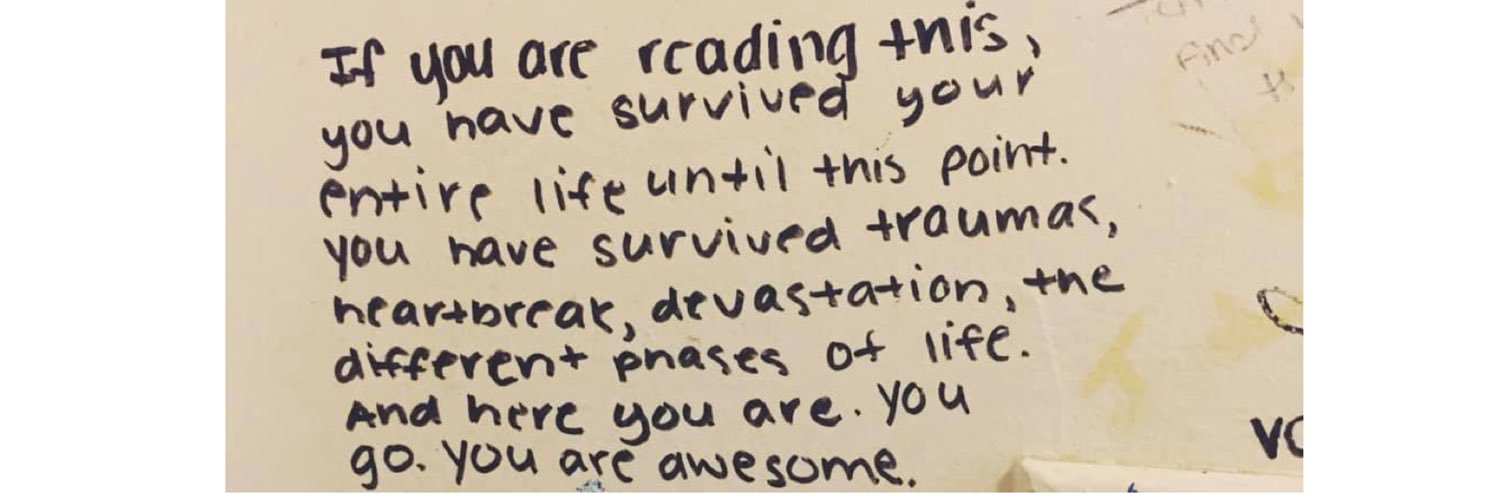 If you are reading this,
you have survived your
entire life until this point.
you have survived traumas,
heartbreak, devastation, the
different phases of life.
And here you are. You
go. You are awesome.